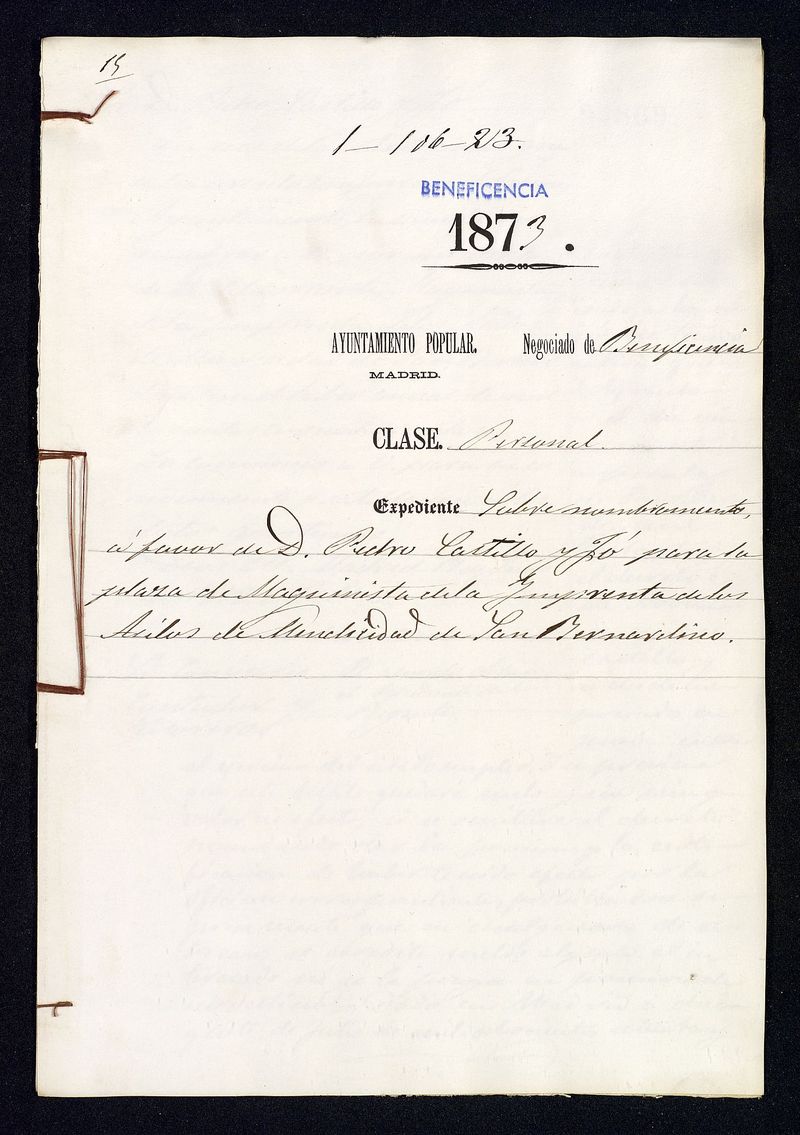 15
1-106-23.
BENEFICENCIA
1873.
AYUNTAMIENTO POPULAR. Negociado de Beneficencia
MADRID.
CLASE. Personal.
Expediente Sobre nombramento,
á favor de D. Pedro Castillo y Jó para la
plaza de Maquinista de la Ymprenta de los
Asilos de Mendicidad de San Bernardino.